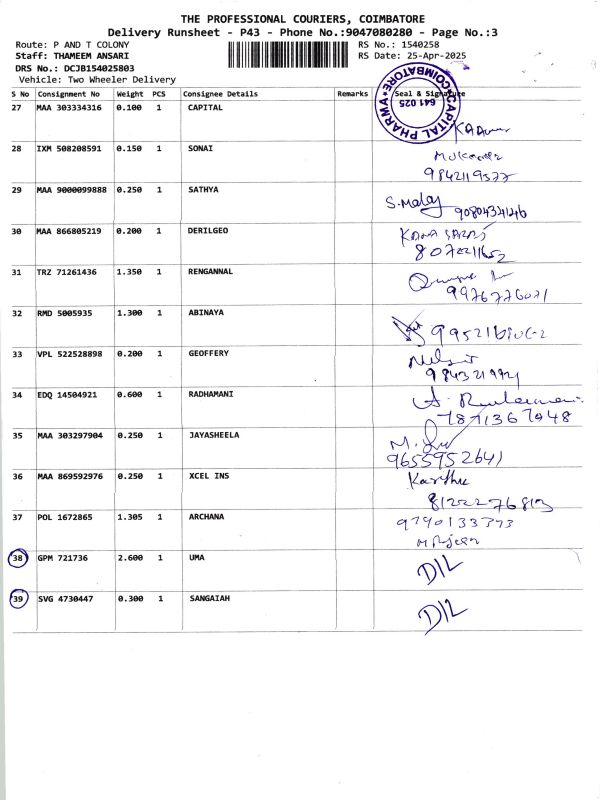 THE PROFESSIONAL COURIERS, COIMBATORE
Delivery Runsheet - P43 - Phone No.:9047080280 - Page No.:3
Route: P AND T COLONY RS No.: 1540258
Staff: THAMEEM ANSARI RS Date: 25-Apr-2025
DRS No.: DCJB154025803
Vehicle: Two Wheeler Delivery
S No Consignment No Weight PCS Consignee Details Remarks Seal & Signature
CAPITAL PHARMA COIMBATORE 641 025
27 MAA 303334316 0.100 1 CAPITAL
28 IXM 508208591 0.150 1 SONAI
9842119577
29 MAA 9000099888 0.250 1 SATHYA
S. Malaj
30 MAA 866805219 0.200 1 DERILGEO
31 TRZ 71261436 1.350 1 RENGANNAL
9976776071
32 RMD 5005935 1.300 1 ABINAYA
33 VPL 522528898 0.200 1 GEOFFERY
34 EDQ 14504921 0.600 1 RADHAMANI
7871367948
35 MAA 303297904 0.250 1 JAYASHEELA
9655952641
36 MAA 869592976 0.250 1 XCEL INS
Karthu
8122276813
37 POL 1672865 1.305 1 ARCHANA
9790133373
38 GPM 721736 2.600 1 UMA
D/L
39 SVG 4730447 0.300 1 SANGAIAH
D/L